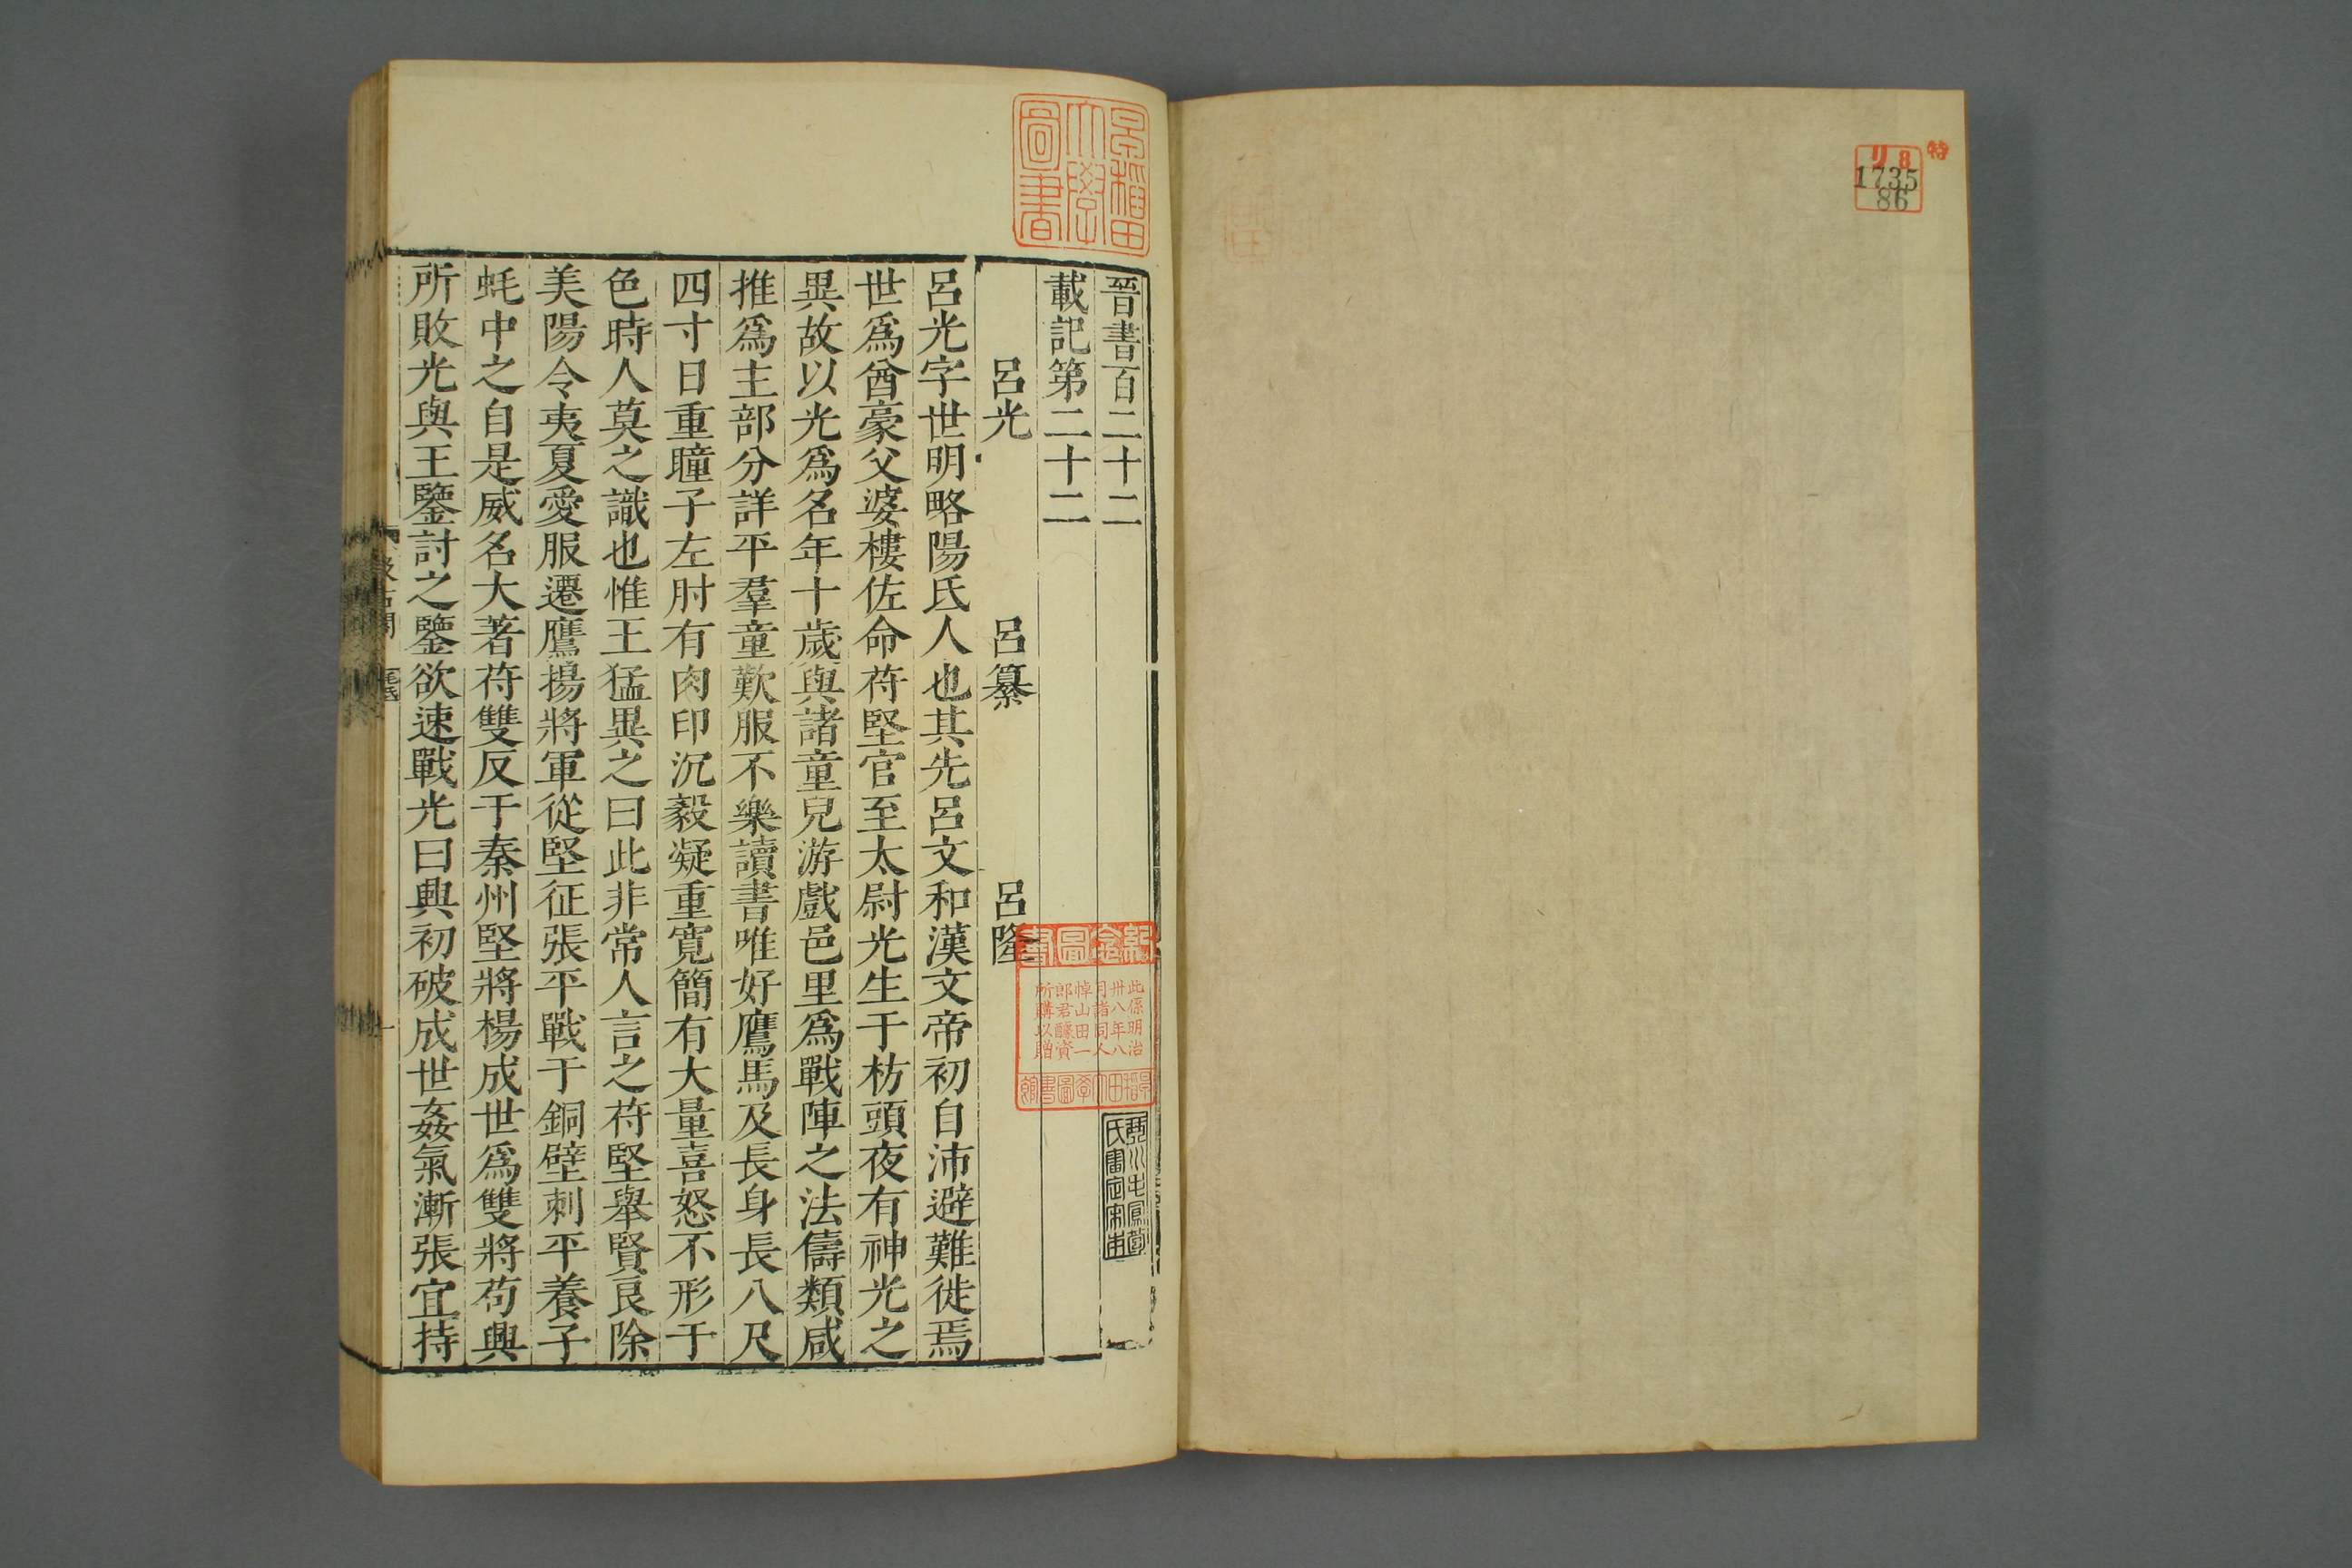 特
リ8
1735
86
早稲田
大學
圖書
晉書百二十二
載記第二十二
呂光　呂纂　呂隆
呂光字世明略陽氐人也其先呂文和漢文帝初自沛避難徙焉
世爲酋豪父婆樓佐命苻堅官至太尉光生于枋頭夜有神光之
異故以光爲名年十歲與諸童兒游戲邑里爲戰陣之法儔類咸
推爲主部分詳平羣童歎服不樂讀書唯好鷹馬及長身長八尺
四寸目重瞳子左肘有肉印沉毅凝重寬簡有大量喜怒不形于
色時人莫之識也惟王猛異之曰此非常人言之苻堅舉賢良除
美陽令夷夏愛服遷鷹揚將軍從堅征張平戰于銅壁刺平養子
蚝中之自是威名大著苻雙反于秦州堅將楊成世爲雙將苟興
所敗光與王鑒討之鑒欲速戰光曰興初破成世姦氣漸張宜持
此係明治
卅八年八
月諸同人
悼山田一
郎君醵資
所購以贈
早稲田大學圖書館
汲古閣
毛氏